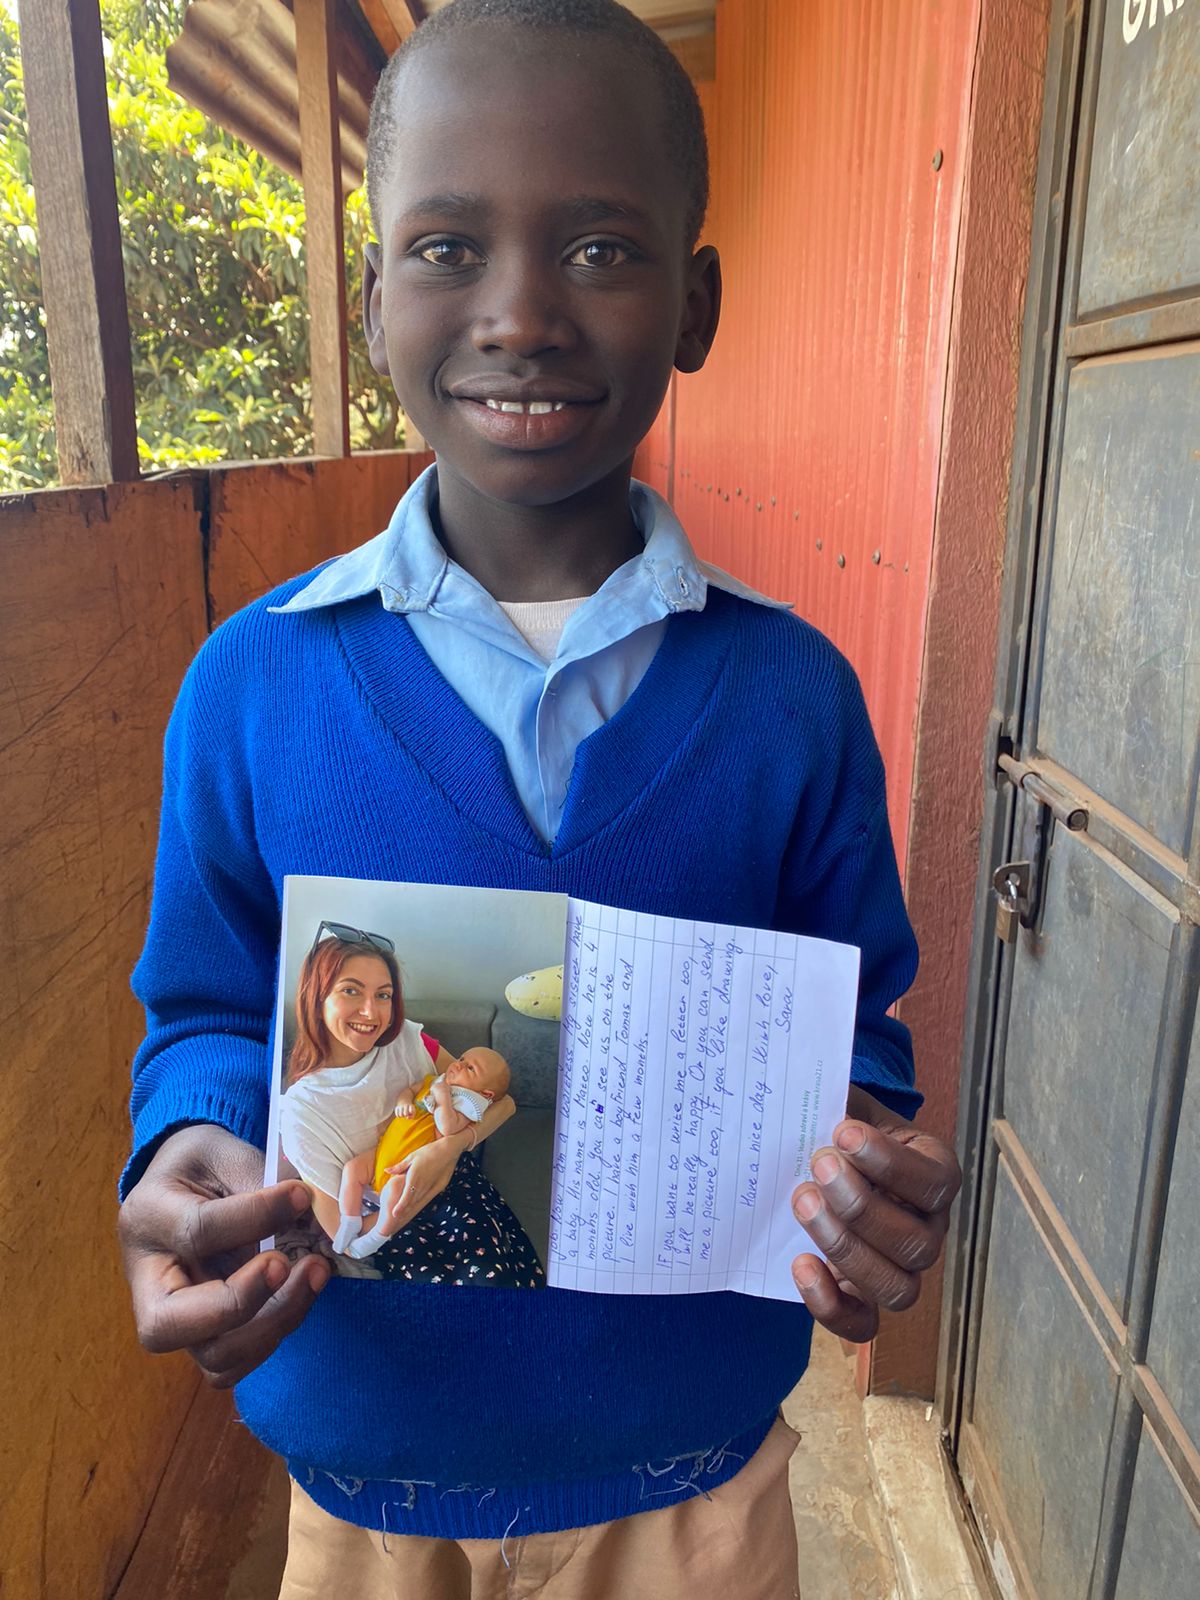 GR
job. Now I am a waitress. My sister have
a baby. His name is Mateo. Now he is 4
months old. You can see us on the
picture. I have a boyfriend Tomas and
I live with him a few months.
If you want to write me a letter too,
I will be really happy. Or you can send
me a picture too, if you like drawing.
Have a nice day. With love,
Sara
www.krevni21.cz